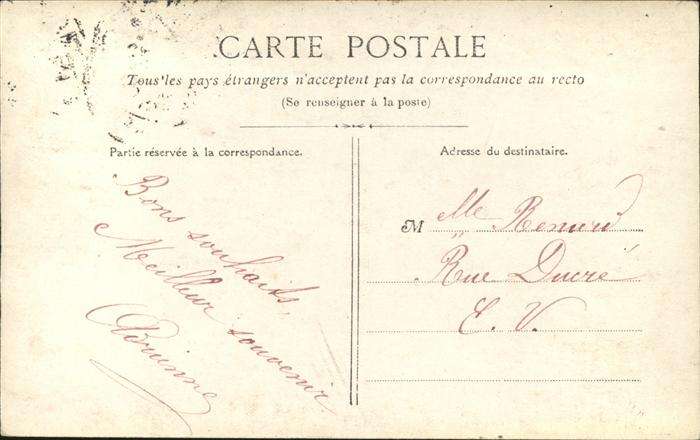 CARTE POSTALE
Tous les pays étrangers n'acceptent pas la correspondance au recto
(Se renseigner à la poste)
Partie réservée à la correspondance.
Bons souhaits,
Meilleur souvenir
Adresse du destinataire.
M
Mlle
Rue Ducré
E. V.